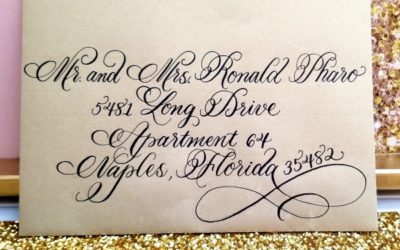 Mr. and Mrs. Ronald Pharo
5481 Long Drive
Apartment 64
Naples, Florida 35482